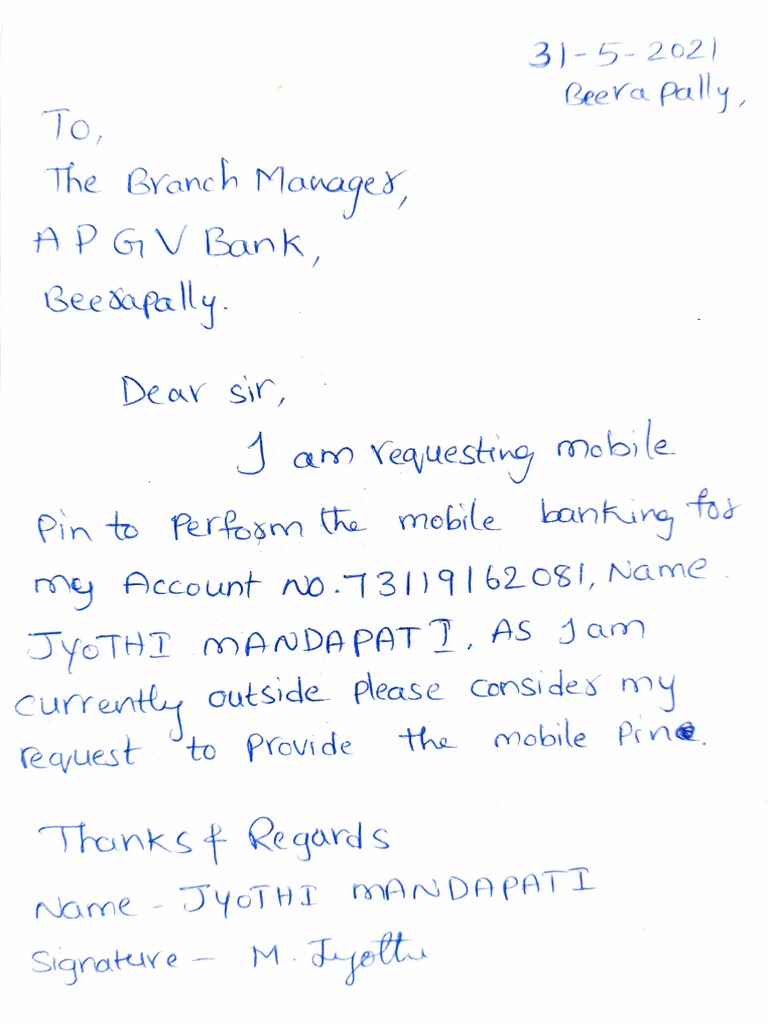 31-5-2021
Beerapally,
To,
The Branch Manager,
A P G V Bank,
Beerapally.
Dear sir,
I am requesting mobile
pin to perform the mobile banking for
my Account NO. 73119162081, Name
JYOTHI MANDAPATI. AS I am
currently outside please consider my
request to provide the mobile pin.
Thanks & Regards
Name - JYOTHI MANDAPATI
Signature - M. Jyothi